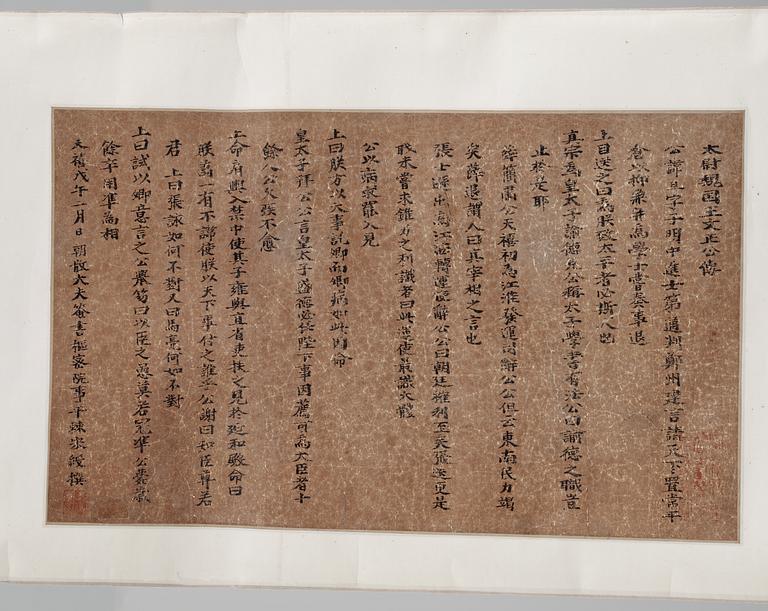 太尉魏國王文正公傳
公諱旦字子明中進士第通判鄭州建言請天下置常平
倉以抑兼并為學士嘗奏事退
上目送之曰為朕致太平者必斯人也
真宗為皇太子諭德見公稱太子學書有法公曰諭德之職豈
止於是耶
薛簡肅公天禧初為江淮發運使辭公公但云東南民力竭
矣薛退謂人曰真宰相之言也
張士遜出為江西轉運使辭公公曰朝廷榷利至矣張迭更是
職未嘗求錐刀之利識者曰此運使最識大體
公以病求罷入見
上曰朕方以大事託卿而卿病如此因命
皇太子拜公公言皇太子盛德必任陛下事因薦可為大臣者十
餘人公久疾不愈
上命肩輿入禁中使其子雍與直省吏扶之見於延和殿命曰
朕一有不諱使朕以天下事付之誰乎公謝曰知臣莫若
君 上曰張詠如何不對又曰馬亮何如不對
上曰試以卿意言之公舉笏曰以臣之愚莫若寇準公薨歲
餘卒用準為相
天禧戊午 月日朝散大夫簽書樞密院事平棘宋綬撰